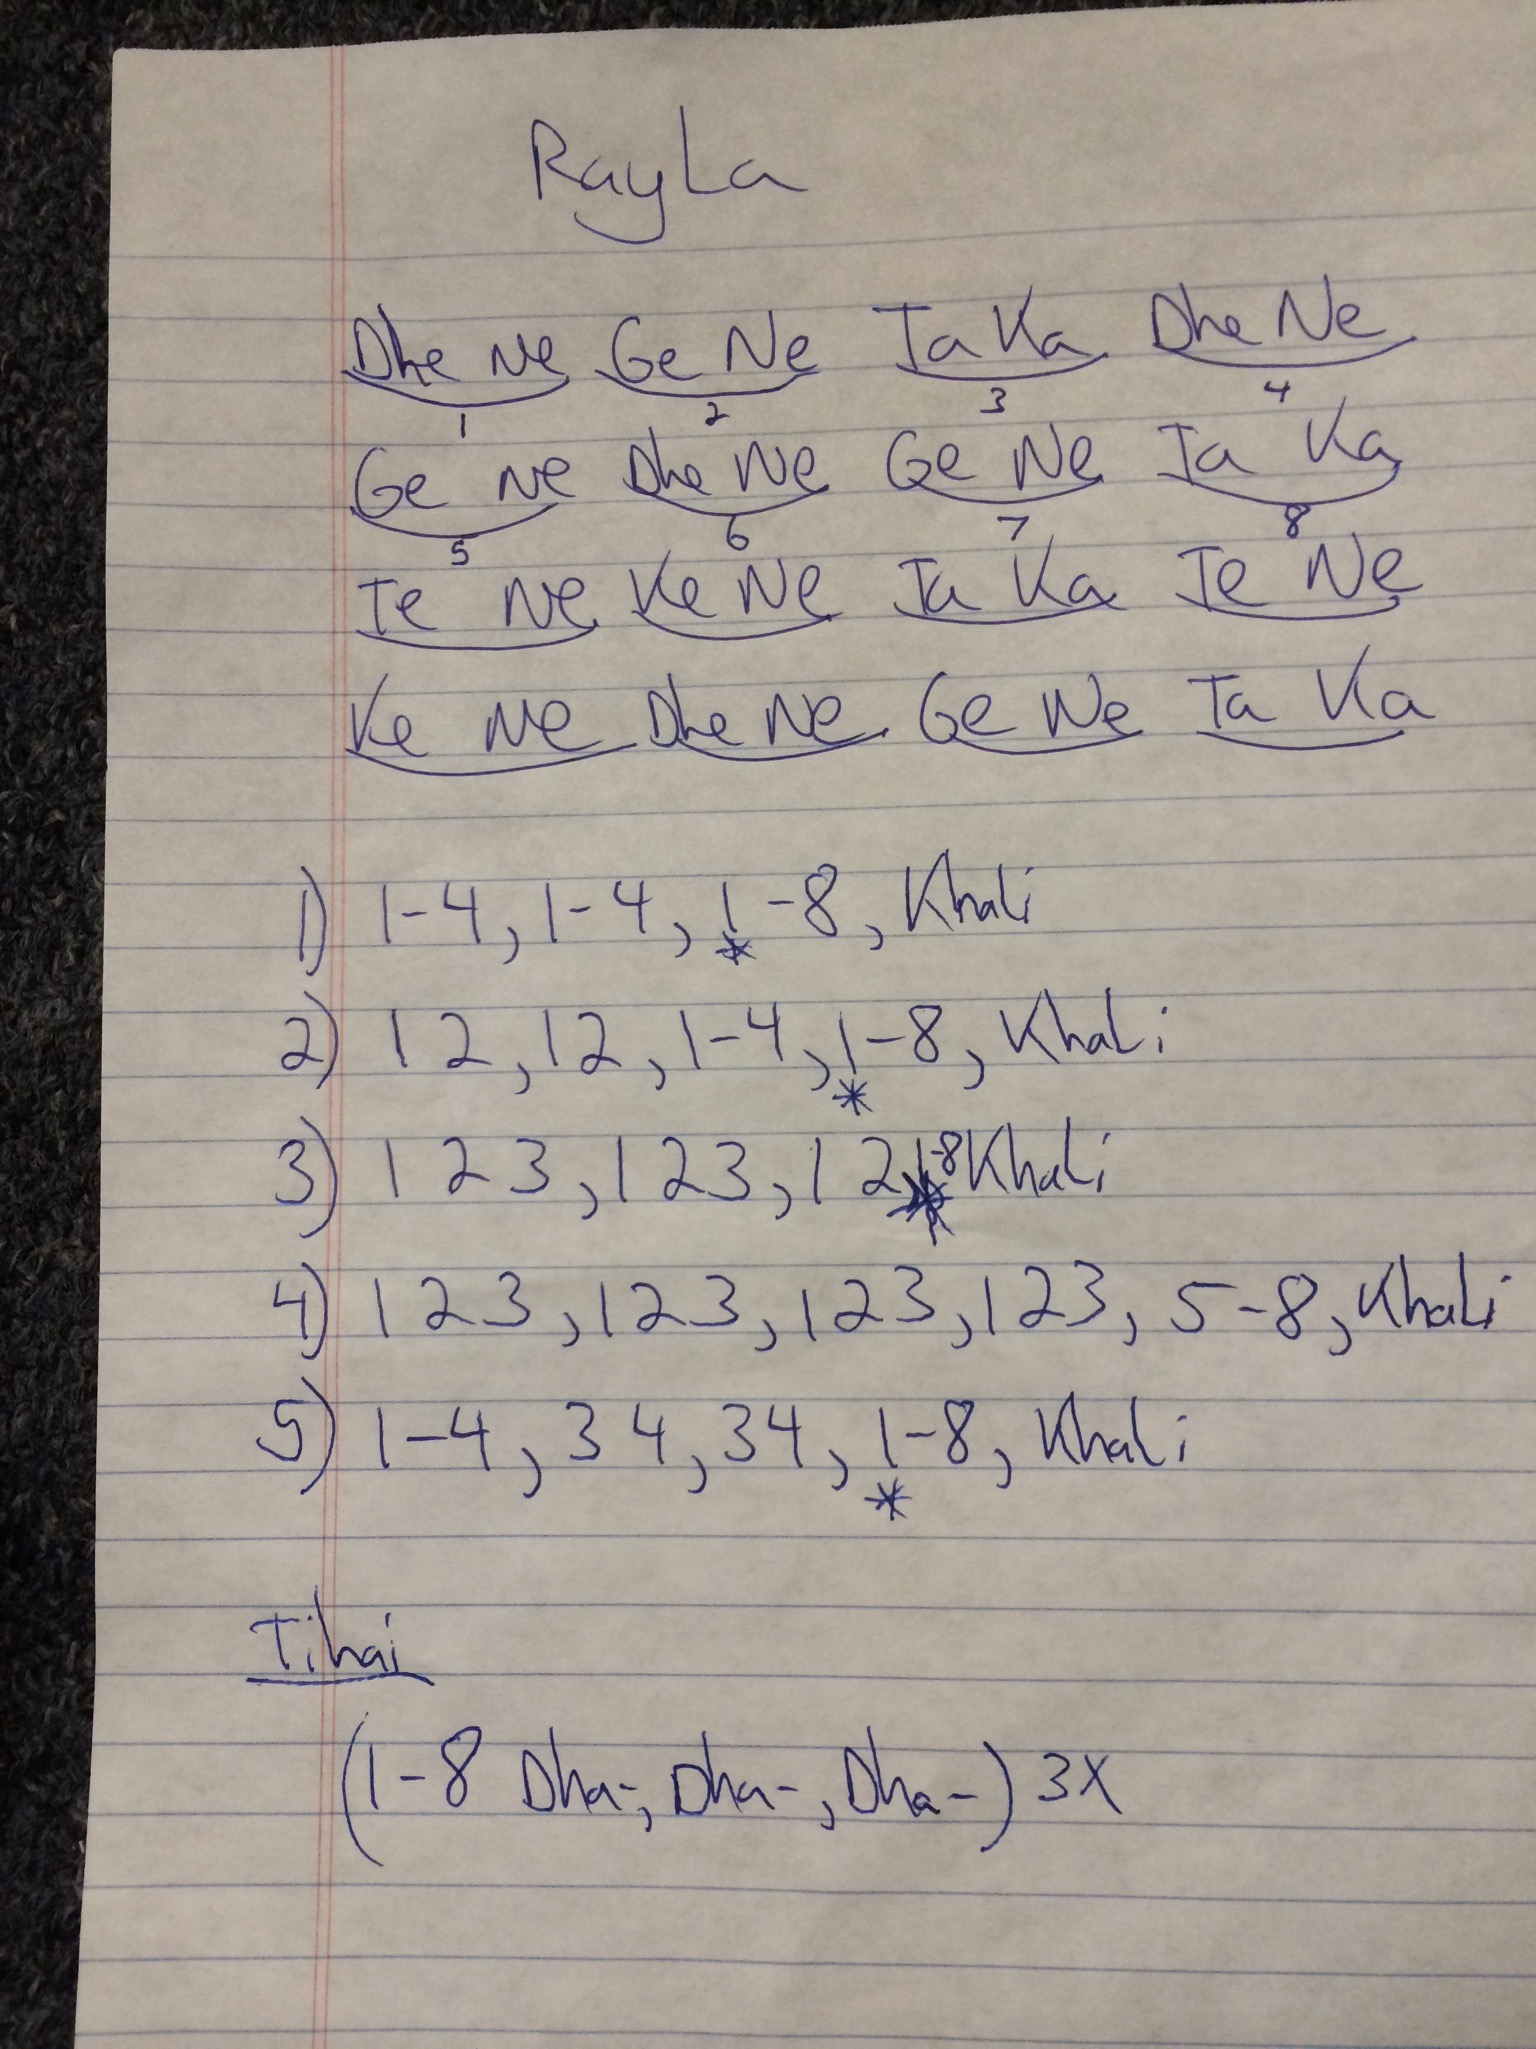 RayLa
Dhe Ne Ge Ne Ta Ka Dhe Ne
1 2 3 4
Ge Ne Dhe Ne Ge Ne Ta Ka
5 6 7 8
Te Ne Ke Ne Ta Ka Te Ne
Ke Ne Dhe Ne Ge Ne Ta Ka
1) 1-4, 1-4, 1-8, Khali
*
2) 12, 12, 1-4, 1-8, Khali
*
3) 123, 123, 12 1-8 Khali
*
4) 123, 123, 123, 123, 5-8, Khali
5) 1-4, 34, 34, 1-8, Khali
*
Tihai
(1-8 Dha-, Dha-, Dha-) 3X